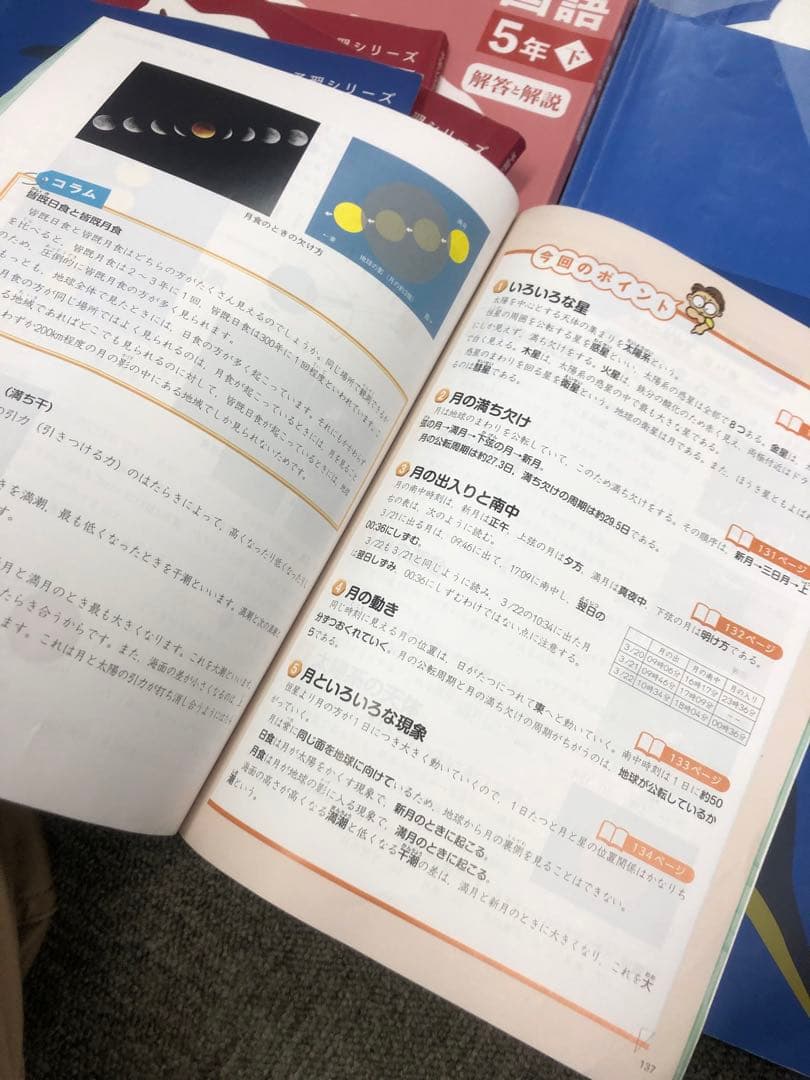 国語
5年 下
解答と解説
習シリーズ
予習シリーズ
習シリーズ
月食のときの欠け方
地球の影(月の約3倍)
コラム
皆既日食と皆既月食
皆既日食と皆既月食はどちらの方がたくさん見えるのでしょうか。同じ場所で観測できるか
を比べると、皆既月食は2〜3年に1回、皆既日食は300年に1回程度といわれています。
のため、圧倒的に皆既月食の方が多く見られます。
もっとも、地球全体で見たときには、日食の方が多く起こっています。それにもかかわらず
月食の方が同じ場所ではよく見られるのは、月食が起こっているときには、月を見ること
る地域であればどこでも見られるのに対して、皆既日食が起こっているときには、地球
わずか200km程度の月の影の中にある地域でしか見られないためです。
(満ち干)
の引力(引きつける力)のはたらきによって、高くなったり低くなったり
きを満潮、最も低くなったときを干潮といいます。満潮と次の満潮
す。
月と満月のとき最も大きくなります。これを大潮といいます。
たらき合うからです。また、海面の差が小さくなるのは、上
ます。これは月と太陽の引力が打ち消し合うようにはたら
今回のポイント
1 いろいろな星
太陽を中心とする天体の集まりを太陽系という。
恒星の周囲を公転する星を惑星といい、太陽系の惑星は全部で8つある。金星は
にしか見えず、満ち欠けをする。火星は、鉄分の酸化のため赤く見え、両極付近はドラ
で白く見える。木星は、太陽系の惑星の中で最も大きな星である。
惑星のまわりを回る星を衛星という。地球の衛星は月である。また、ほうき星ともよばれ
るのは彗星である。
2 月の満ち欠け
131ページ
月は地球のまわりを公転していて、このため満ち欠けをする。その順序は、新月→三日月→上
弦の月→満月→下弦の月→新月。
月の公転周期は約27.3日、満ち欠けの周期は約29.5日である。
3 月の出入りと南中
132ページ
月の南中時刻は、新月は正午、上弦の月は夕方、満月は真夜中、下弦の月は明け方である。
右の表は、次のように読む。
3/21に出る月は、09:46に出て、17:09に南中し、翌日の
00:36にしずむ。
3/22も3/21と同じように読み、3/22の10:34に出た月
は翌日しずみ、00:36にしずむわけではない点に注意する。
月の出 月の南中 月の入り
3/20 09時06分 16時17分 23時36分
3/21 09時46分 17時09分 --
3/22 10時34分 18時04分 00時36分
4 月の動き
133ページ
同じ時刻に見える月の位置は、日がたつにつれて東へと動いていく。南中時刻は1日に約50
分ずつおくれていく。月の公転周期と月の満ち欠けの周期がちがうのは、地球が公転しているか
らである。
5 月といろいろな現象
134ページ
恒星より月の方が1日につき大きく動いていくので、1日たつと月と星の位置関係はかなりち
がっていく。
月は常に同じ面を地球に向けているため、地球から月の裏側を見ることはできない。
日食は月が太陽をかくす現象で、新月のときに起こる。
月食は月が地球の影に入る現象で、満月のときに起こる。
海面の高さが高くなる満潮と低くなる干潮の差は、満月と新月のときに大きくなり、これを大
潮という。
137